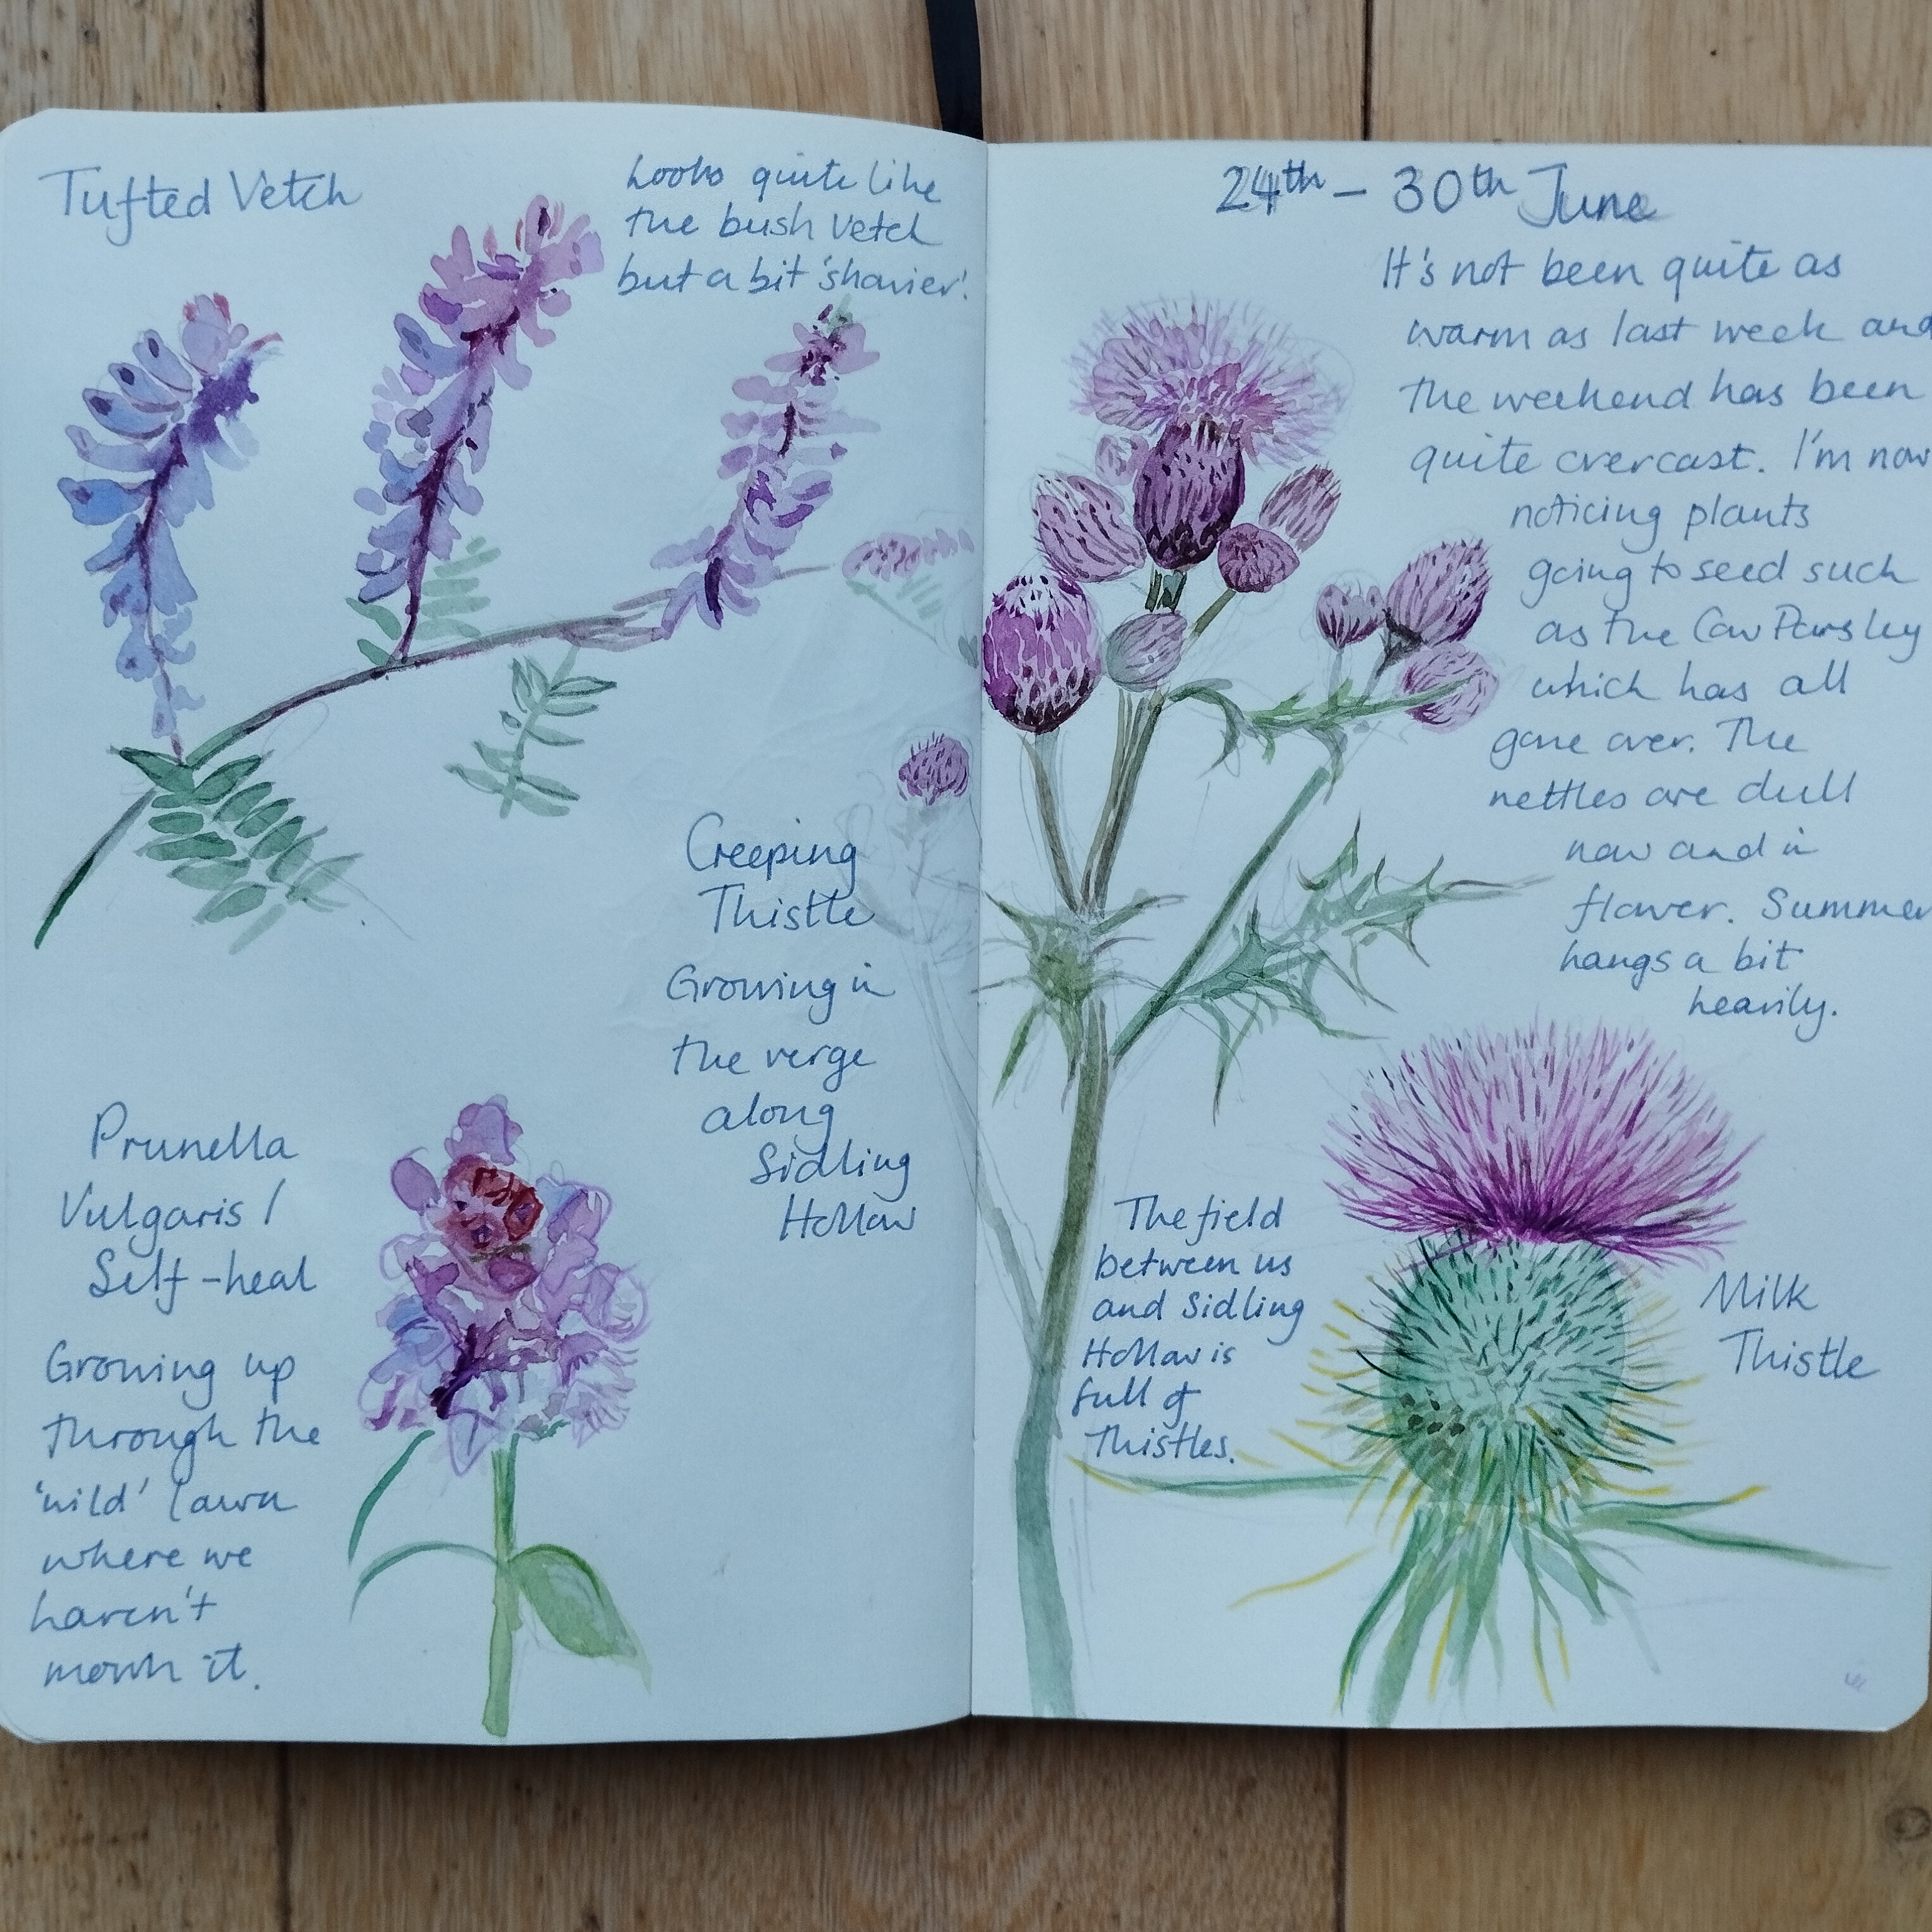 Tufted Vetch
Looks quite like
the bush Vetch
but a bit 'showier'.
Creeping
Thistle
Growing in
the verge
along
Sidling
Hollow
Prunella
Vulgaris /
Self-heal
Growing up
through the
'wild' lawn
where we
haven't
mown it.
24th - 30th June
It's not been quite as
warm as last week and
the weekend has been
quite overcast. I'm now
noticing plants
going to seed such
as the Cow Parsley
which has all
gone over. The
nettles are dull
now and in
flower. Summer
hangs a bit
heavily.
The field
between us
and Sidling
Hollow is
full of
Thistles.
Milk
Thistle